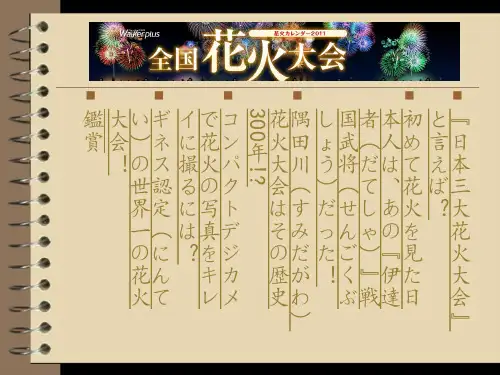 Walkerplus
花火カレンダー2011
全国花火大会
『日本三大花火大会』
と言えば?
初めて花火を見た日
本人は、あの『伊達
者(だてしゃ)』戦
国武将(せんごくぶ
しょう)だった!
隅田川(すみだがわ)
花火大会はその歴史
300年!?
コンパクトデジカメ
で花火の写真をキレ
イに撮るには?
ギネス認定(にんて
い)の世界一の花火
大会!
鑑賞